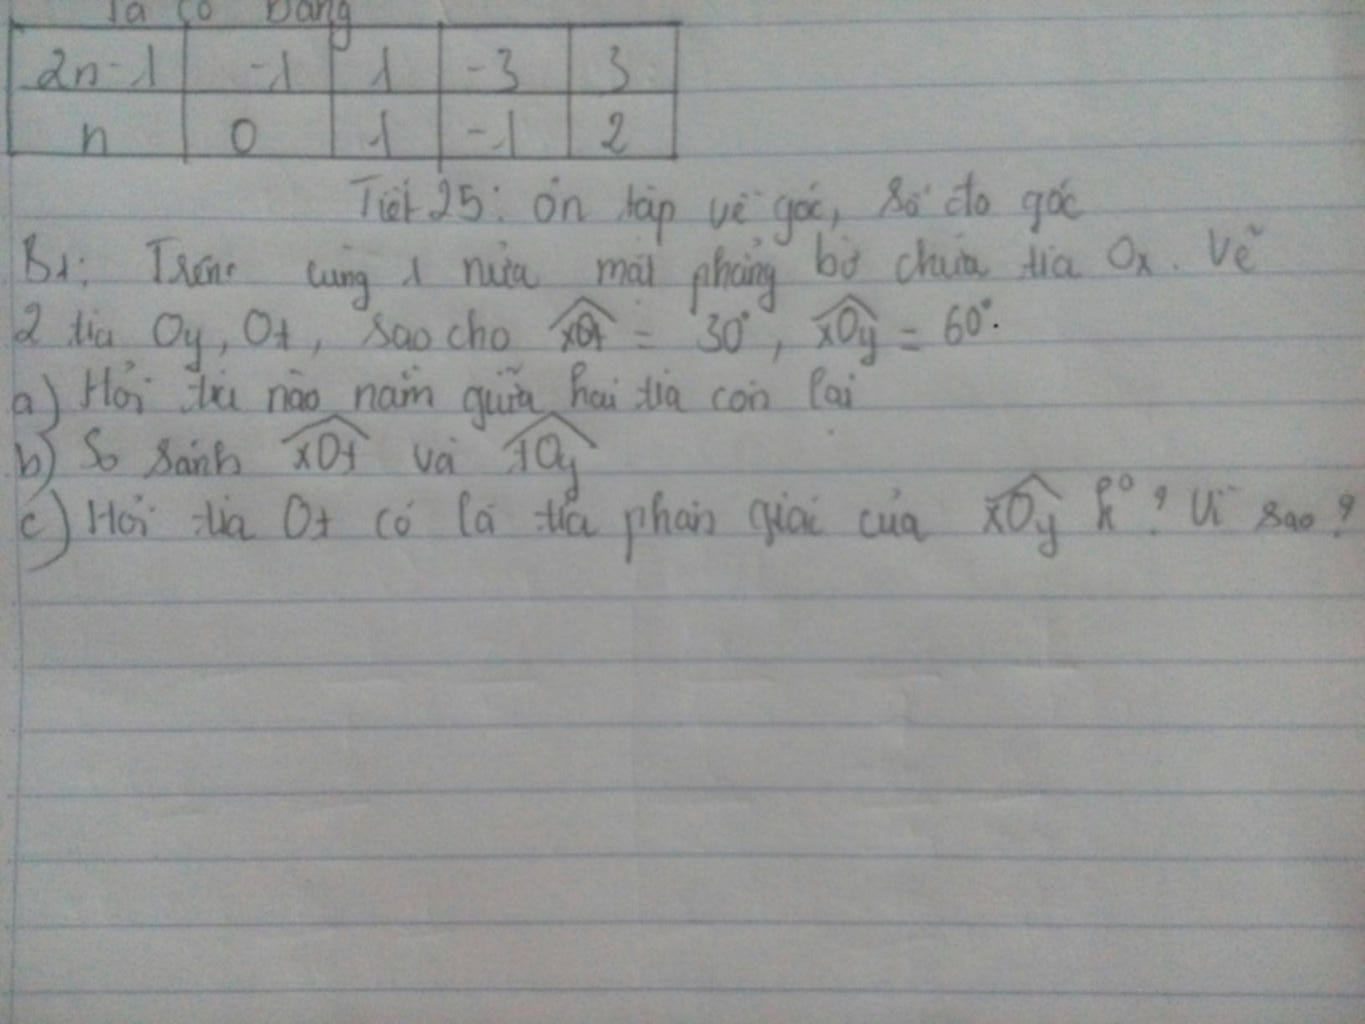 Ta có bảng
2n-1 -1 1 -3 3
n 0 1 -1 2
Tiết 25: Ôn tập về góc, số đo góc
B1: Trên cùng 1 nửa mặt phẳng bờ chứa tia Ox. Vẽ
2 tia Oy, Ot, sao cho xOt = 30°, xOy = 60°.
a) Hỏi tia nào nằm giữa hai tia còn lại
b) So sánh xOt và tOy
c) Hỏi tia Ot có là tia phân giác của xOy k° ? Vì sao ?